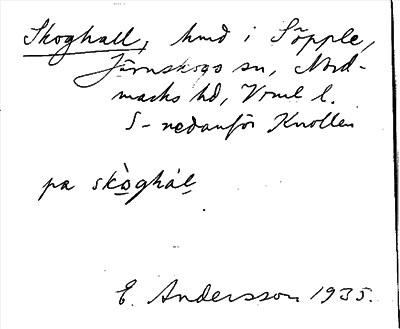 Skoghall, hmd i Töpple,
Järnskogs sn, Nord-
marks hd, Vrml l.
S-nedanför Knollen
på skòghál
E. Andersson 1935.